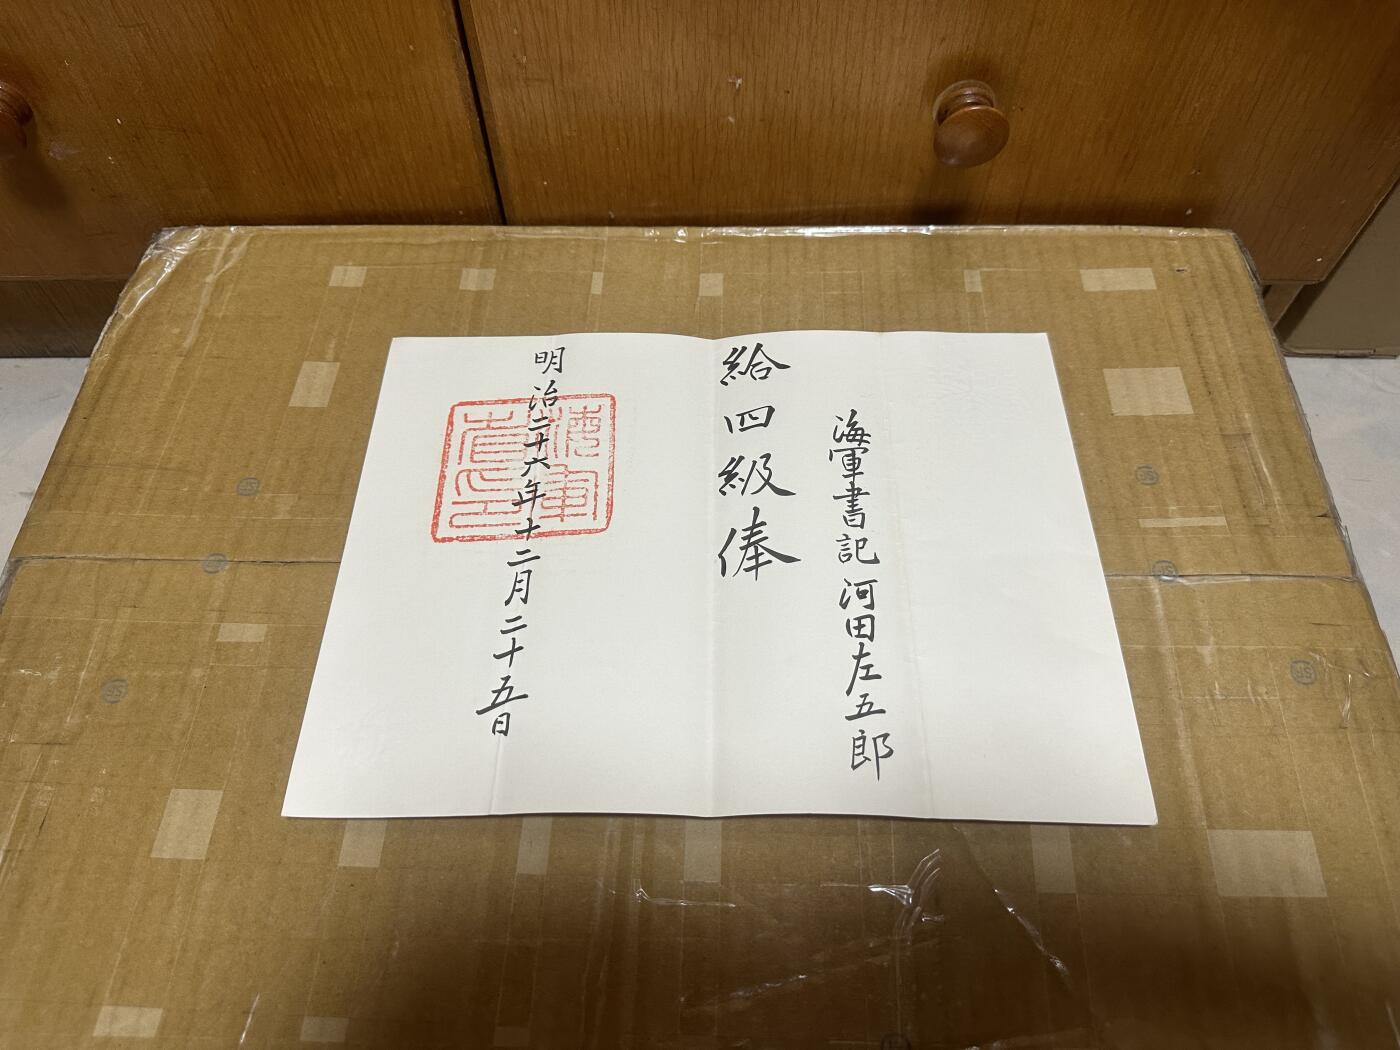 海軍書記河田左五郎
給四級俸
明治二十六年十二月二十五日
海軍省印